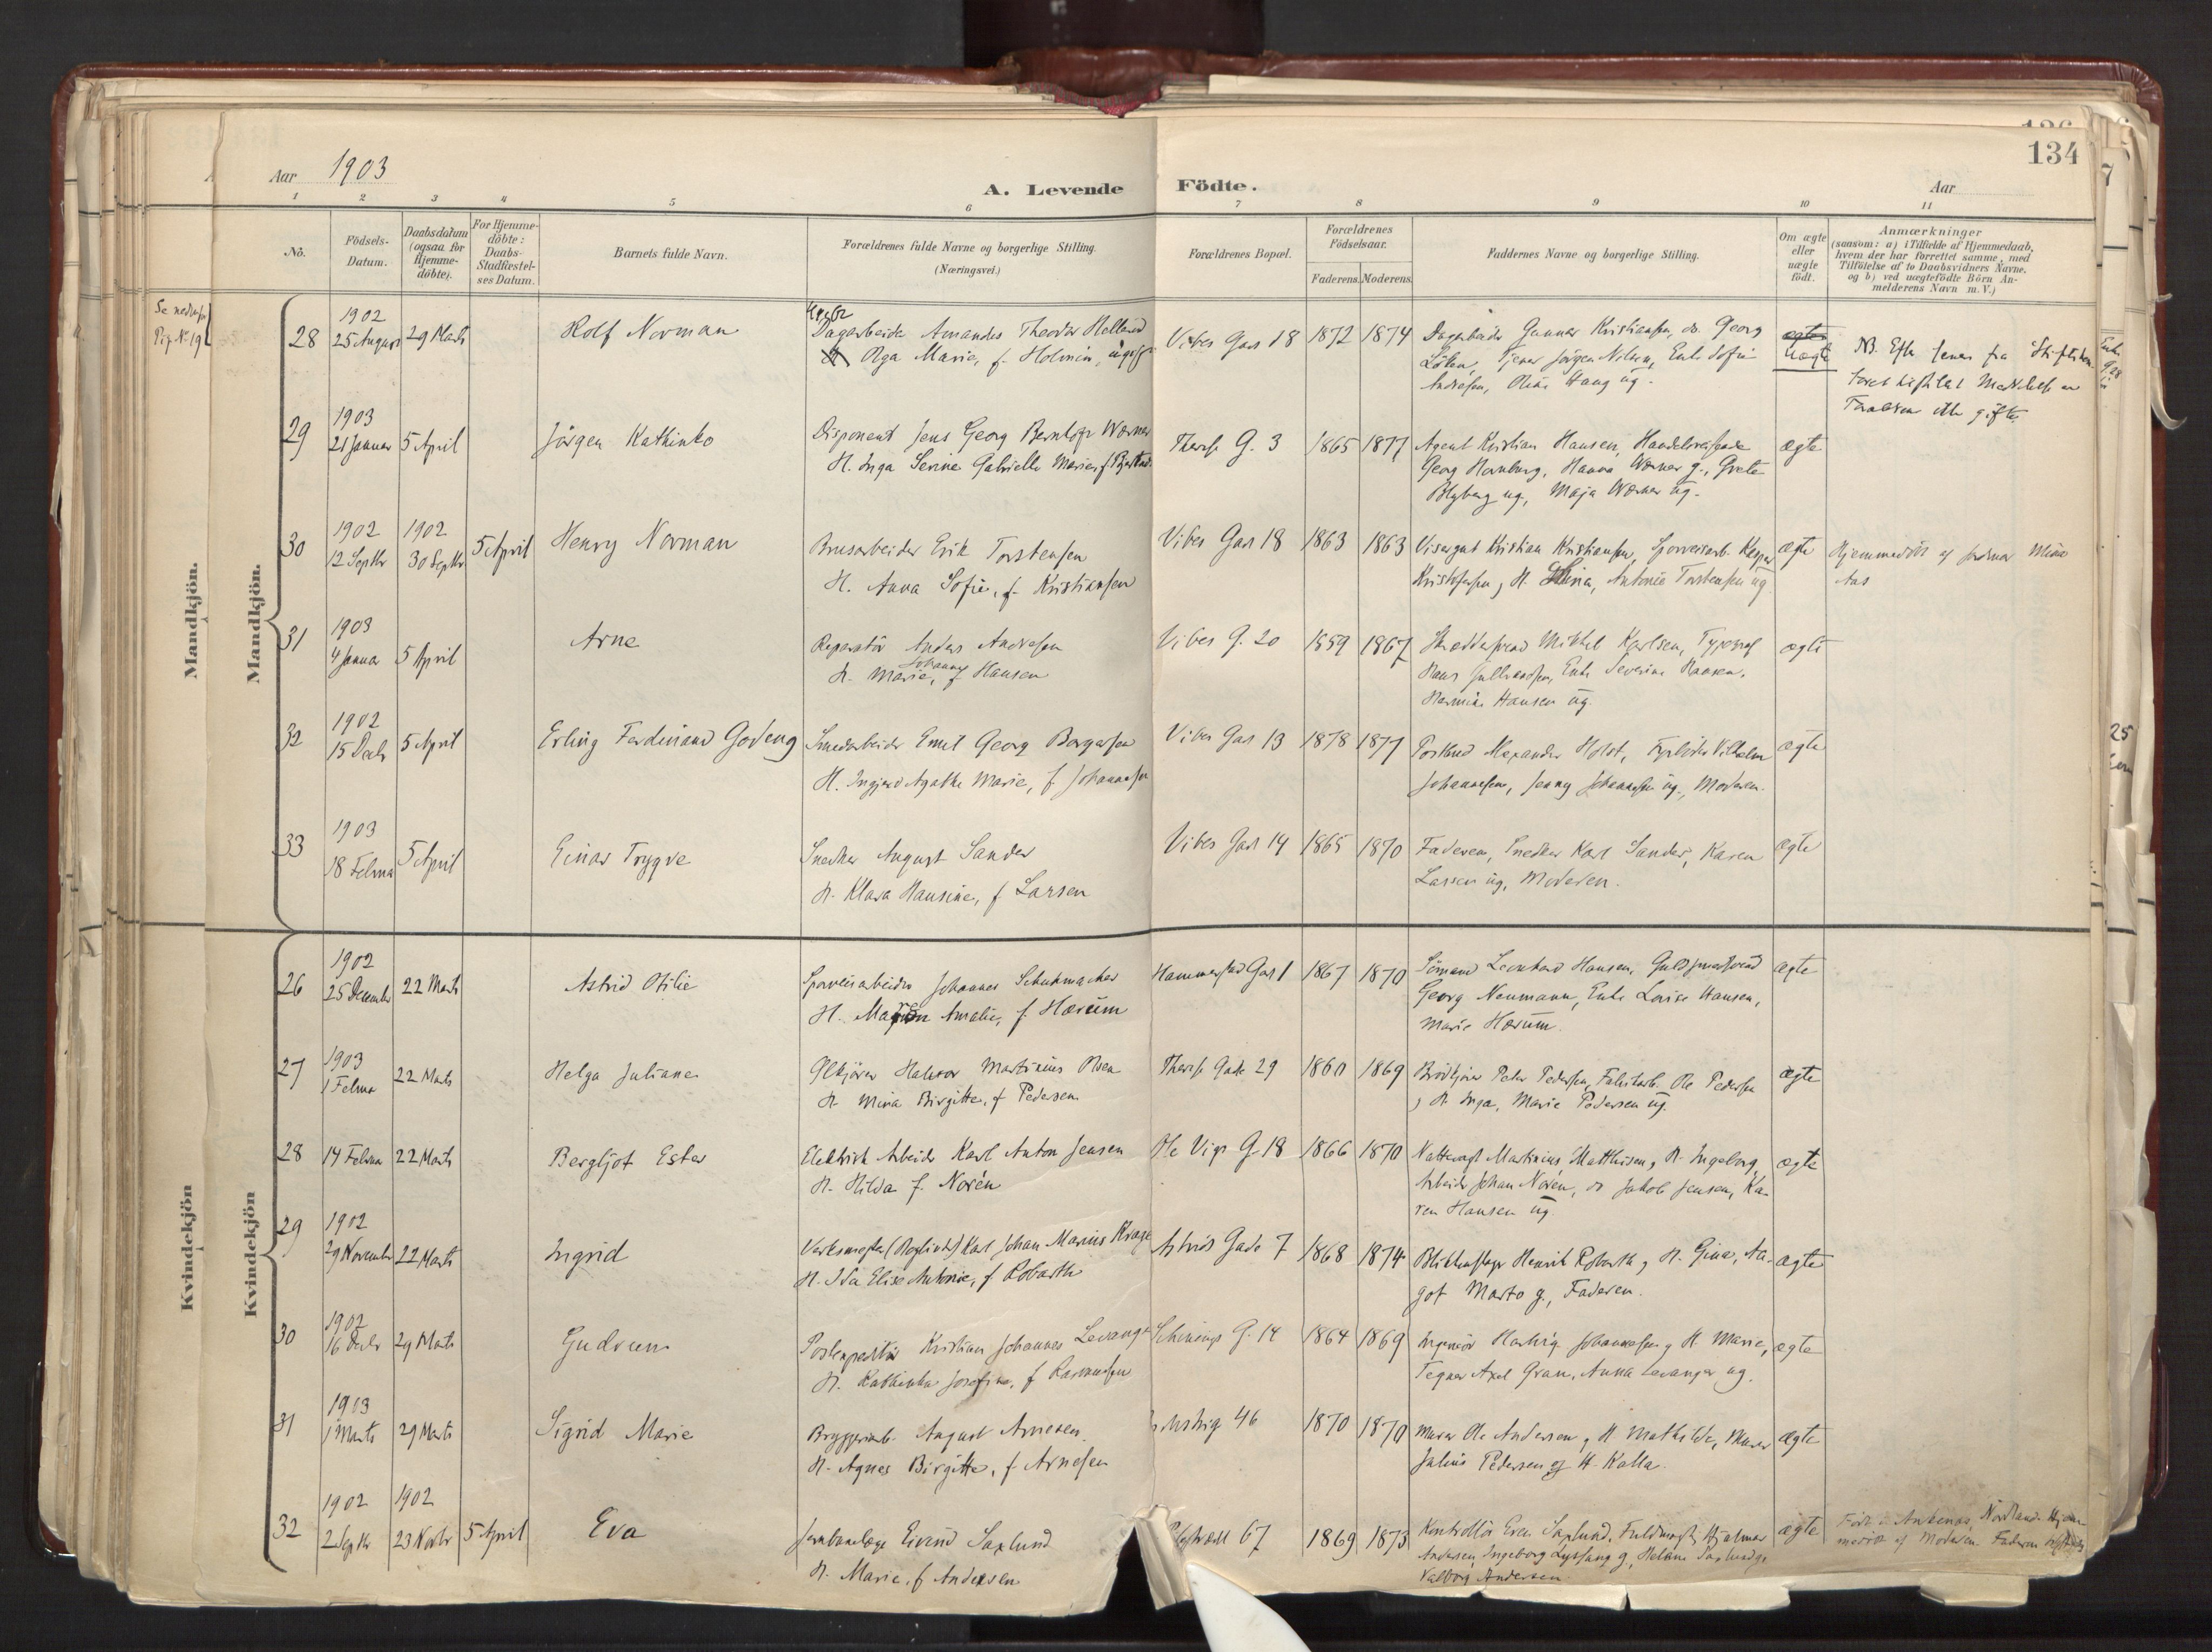 134
Aar 1903
A. Levende Födte.
Aar
1 2 3 4 5 6 7 8 9 10 11
No.
Födsels-
Datum.
Daabsdatum
(ogsaa for
Hjemme-
döbte).
For Hjemme-
döbte:
Daabs-
Stadfæstel-
ses Datum.
Barnets fulde Navn.
Forældrenes fulde Navne og borgerlige Stilling.
(Næringsvei.)
Forældrenes Bopæl.
Forældrenes
Födselsaar.
Faderens. Moderens.
Faddernes Navne og borgerlige Stilling.
Om ægte
eller
uægte
födt.
Anmærkninger
(saasom: a) i Tilfælde af Hjemmedaab,
hvem der har forrettet samme, med
Tilföielse af to Daabsvidners Navne,
og b) ved uægtefödte Börn An-
melderens Navn m. V.)
Mandkjön.
Mandkjön.
28
1902
25 August 29 Marts
Rolf Norman
Dagarbeider Amandus Theodor Helland
Olga Marie, f. Holmin, ugift
Vibes Gad 18 1872 1874
Dagarbeider Gunnar Kristiansen, do. Georg
Löken, Tjener Jörgen Nilsen, Enke Sofie
Andresen, Olina Haug ug.
ægte
uægte
NB. Efter senere fra Stiftskon-
29
1903
21 Januar 5 April
Jörgen Kathinko
Disponent Jens Georg Berntzgr Werner
H. Inga Serine Gabrielle Marie, f.
Theres G. 3 1865 1877
Agent Kristian Hansen, Handelsreisende
Georg Hornburg, Hanna Werner g., Grete
Blyberg ug., Maja Werner ug.
ægte
30
1902 1902
12 Septbr 30 Septbr 5 April
Henry Norman
Brusarbeider Erik Torstensen
H. Anna Sofie, f. Kristiansen
Vibes Gad 18 1863 1863
Visergut Kristian Kristiansen, Sporveisarb. Kasper
Kristofersen og H. Stina, Antonie Torstensen ug.
ægte
Hjemmedöbt af Jordmor
31
1903
4 Januar 5 April
Arne
Reparatör Anders Andresen
Johanne
H. Marie, f. Hansen
Vibes G. 20 1859 1867
Skræddersvend Mikkel Karlsen, Typograf
Hans Gulbrandsen, Enke Severine Hansen,
Hermine Hansen ug.
ægte
32
1902
15 Decbr 5 April
Erling Ferdinand Godeng
Smedarbeider Emil Georg Borgersen
H. Ingjerd Agathe Marie, f. Johannesen
Vibes Gad 13 1878 1877
Postbud Alexander Holst, Vilhelm
Johannesen, Jenny Johannesen ug., Moderen.
ægte
33
1903
18 Februar 5 April
Einar Trygve
Snedker August Sander
H. Klara Hansine, f. Larsen
Vibes Gad 14 1865 1870
Faderen, Snedker Karl Sander, Karen
Larsen ug, Moderen.
ægte
Kvindekjön
Kvindekjön
26
1902
25 December 22 Marts
Astrid Otilie
Sporveisarbeider Johannes Schuhmacher
H. Amalie, f. Hærum
Hammerstad Gad 1 1867 1870
Sömand Leonhard Hansen, Guldsmedsvend
Georg Neumann, Enke Lovise Hansen,
Marie Hærum.
ægte
27
1903
1 Februar 22 Marts
Helga Juliane
Ölkjörer Halvor Martinius Olsen
H. Mina Birgitte, f. Pedersen
Theres Gade 29 1860 1869
Brödkjörer Peter Pedersen, Fabrikarb. Ole Pedersen
og H. Inga, Marie Pedersen ug.
ægte
28
14 Februar 22 Marts
Bergljot Ester
Elektrisk Arbeider Karl Anton Jensen
H. Hilda f. Norén
Ole Vigs G 18 1866 1870
Nattevagt Martinius Matthisen og H. Ingeborg,
Arbeider Johan Norén, do Jakob Jensen, Ka-
ren Hansen ug.
ægte
29
1902
29 November 22 Marts
Ingrid
Karl Johan Marius Krage
H. Ida Elise Antonie, f. Robarth
Astrids Gade 7 1868 1874
Blikkenslager Henrik Robarth og H. Gina, Aa-
got Marto g., Faderen.
ægte
30
1902
16 Decbr 29 Marts
Gudrun
Postexpeditör Kristian Johannes Levanger
H. Kathinka Josefine, f. Rasmussen
Schwings G. 14 1864 1869
Ingeniör Hartvig Johannesen og H. Marie,
Tegner Axel Gran, Anna Levanger ug.
ægte
31
1903
1 Marts 29 Marts
Sigrid Marie
Bryggeriarb. August Arnesen
H. Agnes Birgitte, f. Arnesen
46 1870 1870
Murer Ole Andersen og H. Mathilde, Murer
Julius Pedersen og H. Kalla.
ægte
32
1902 1902
2 Septbr 23 Novbr 5 April
Eva
Jernbanelæge Eivind Saxlund
H. Marie, f. Andersen
67 1869 1873
Kontrollör Even Saxlund, Fuldmægt. Hjalmar
Andersen, Ingeborg g, Helene Saxlund g.
Valborg Andersen.
ægte
Födt i Ankenes, Nordland. Hjem-
medöbt af Moderen. Faderen